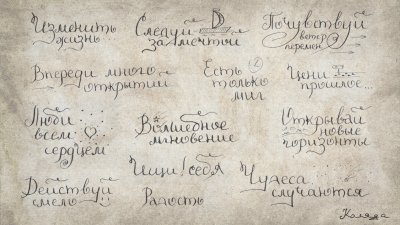 Изменить
жизнь
Следуй
за мечтой
Почувствуй
ветер
перемен
Впереди много
открытий
Есть
только
миг
Цени
прошлое...
Люби
всем
сердцем
Волшебное
мгновение
Открывай
новые
горизонты
Действуй
смело
Ищи! себя
Радость
Чудеса
случаются
Коляда